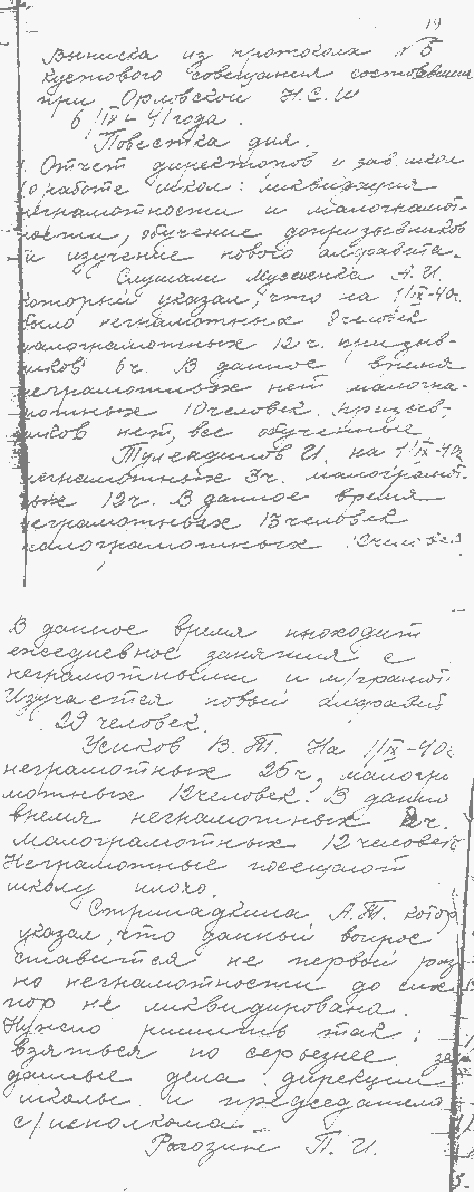 19
Выписка из протокола №5
кустового совещания состоявшегося
при Орловской Н.С.Ш
6/IX-41 года.
Повестка дня.
1. Отчет директоров и зав. школ
о работе школ: ликвидация
неграмотности и малограмот-
ности, обучение допризывников
и изучение нового алфавита.
Слушали Мусиенка А.И.
который указал, что на 1/IX-40г.
было неграмотных 8 человек
малограмотных 12 ч. призыв-
ников 6 ч. В данное время
неграмотных нет малогра-
мотных 10 человек призыв-
ников нет, все обученные
И. на 1/IX-40г
неграмотных 3 ч. малограмот-
ных 12 ч. В данное время
неграмотных 13 человек
малограмотных человек
В данное время проходит
ежедневное занятия с
неграмотными и м/грамот
Изучается новый алфавит
29 человек.
Усиков В.Т. На 1/IX-40г
неграмотных 26 ч, малогра
мотных 12 человек. В данно
время неграмотных 2 ч.
малограмотных 12 человек
Неграмотные посещают
школу плохо.
А.Т. котор
указал, что данный вопрос
ставится не первый раз
но неграмотности до сих
пор не ликвидирована.
Нужно решить так:
взяться по серьезнее за
данные дела дирекции
школы и председателю
с/исполкома
Рогозин П.И.